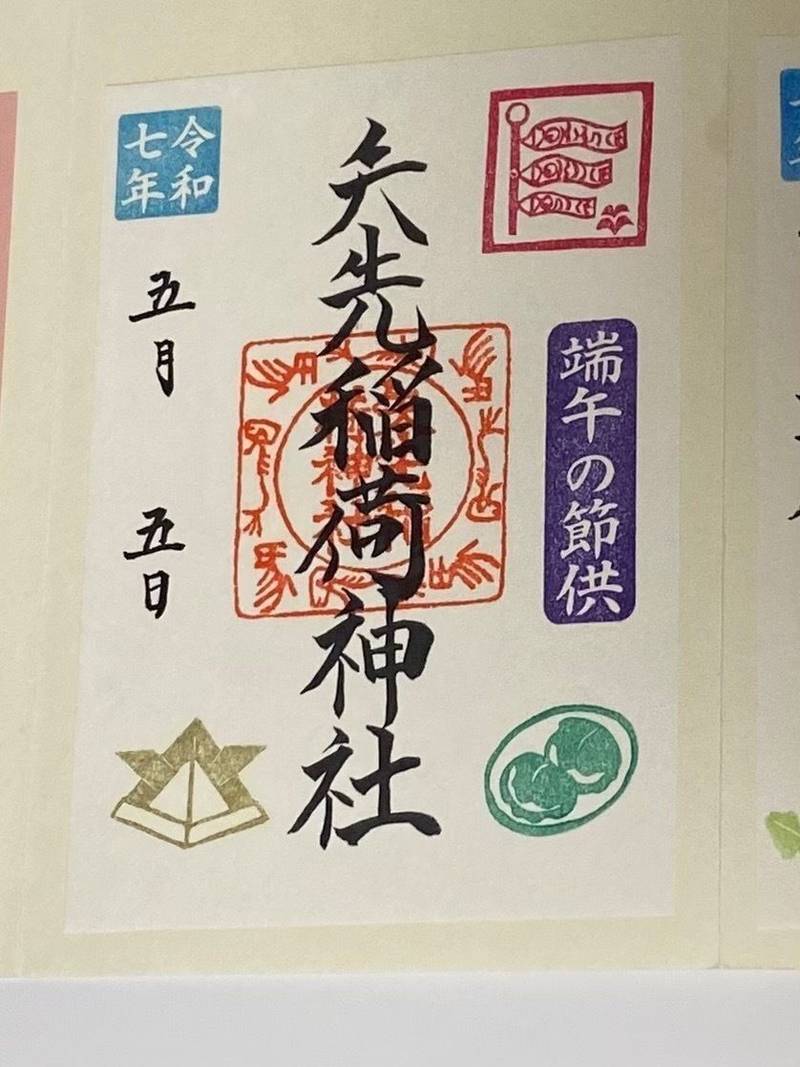 端午の節供
矢先稲荷神社
令和
七年
五月
五日